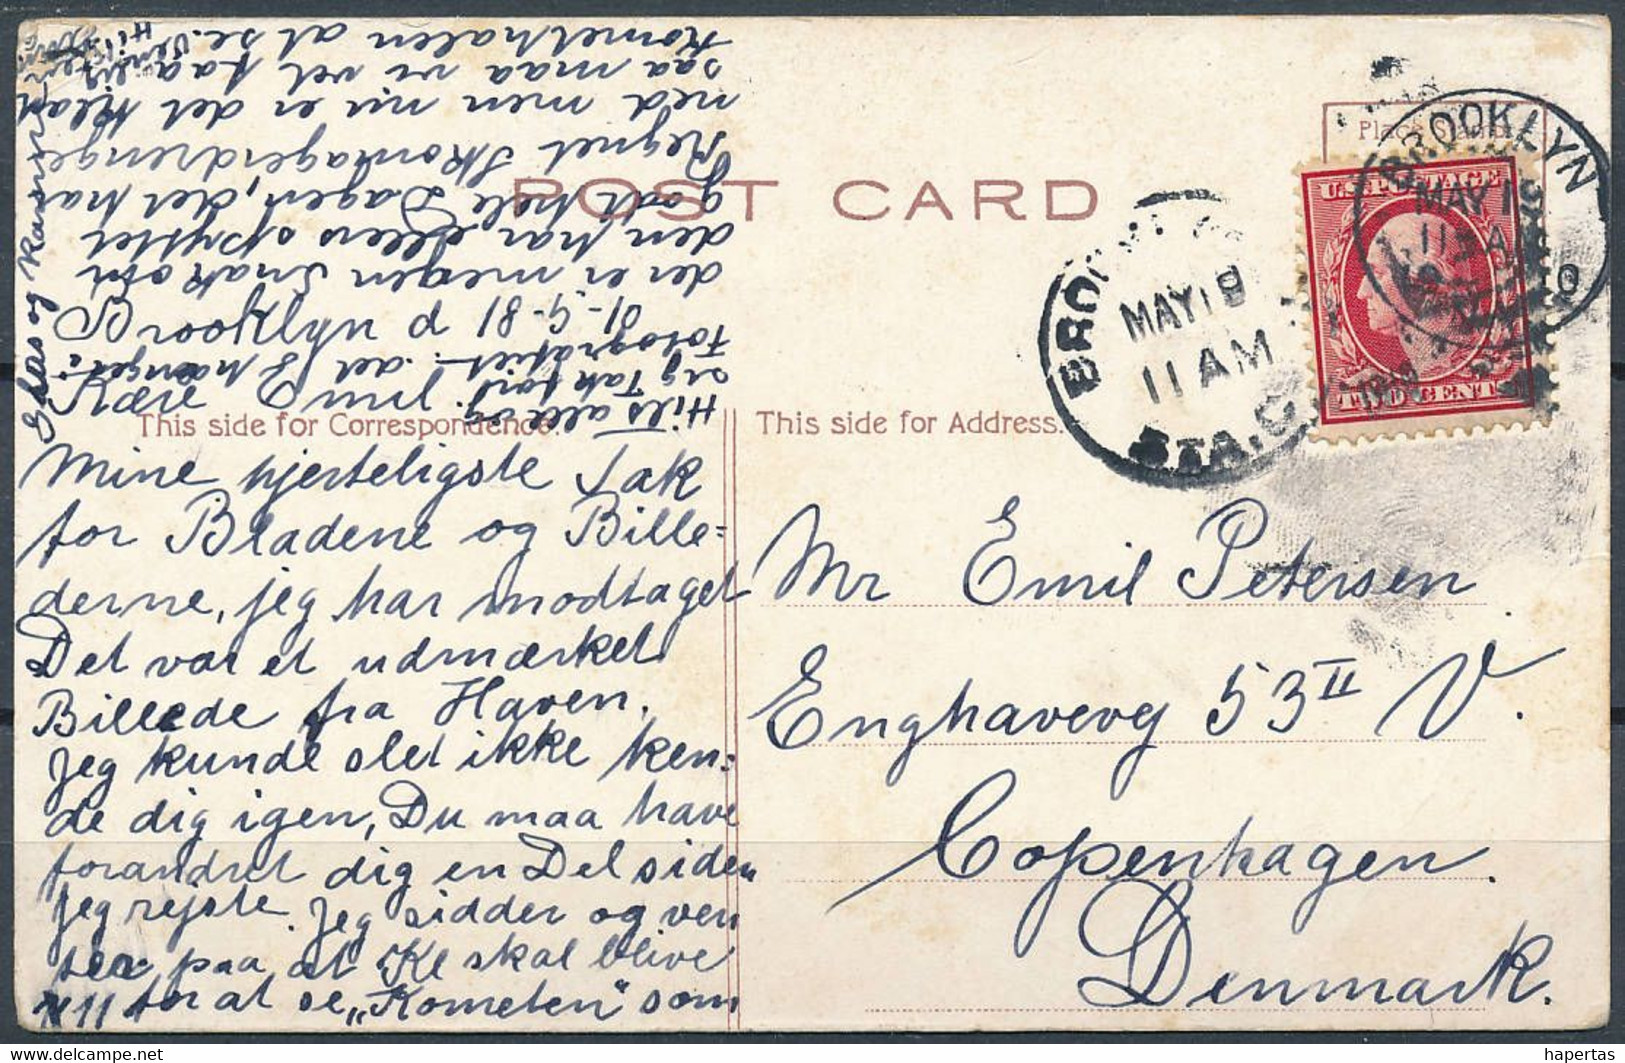 POST CARD
Place Stamp
This side for Correspondence.
This side for Address.
U.S. POSTAGE
TWO CENTS
BROOKLYN
MAY 19
11 AM
STA. C
BROOKLYN
MAY 19
11 AM
1910
Brooklyn d 18-5-10
Kære Emil.
Mine hjerteligste Tak
for Bladene og Bille=
derne, jeg har modtaget
Det var et udmærket
Billede fra Haven.
Jeg kunde slet ikke ken=
de dig igen, Du maa have
forandret dig en Del siden
Jeg rejste. Jeg sidder og ven
ter paa at Kl skal blive
11 for at se „Kometen“ som
der er megen Snak om
den har ellers spyttet
godt hele Dagen, det har
Regnet Skomagerdrenge
ned men nu er det klar
saa maa vi vel faa
Komethalen at se.
Hils alle og
sig Tak for
Fotografiet. det hænger
Mr Emil Petersen
Enghavevej 53 II V.
Copenhagen.
Denmark.
hapertas